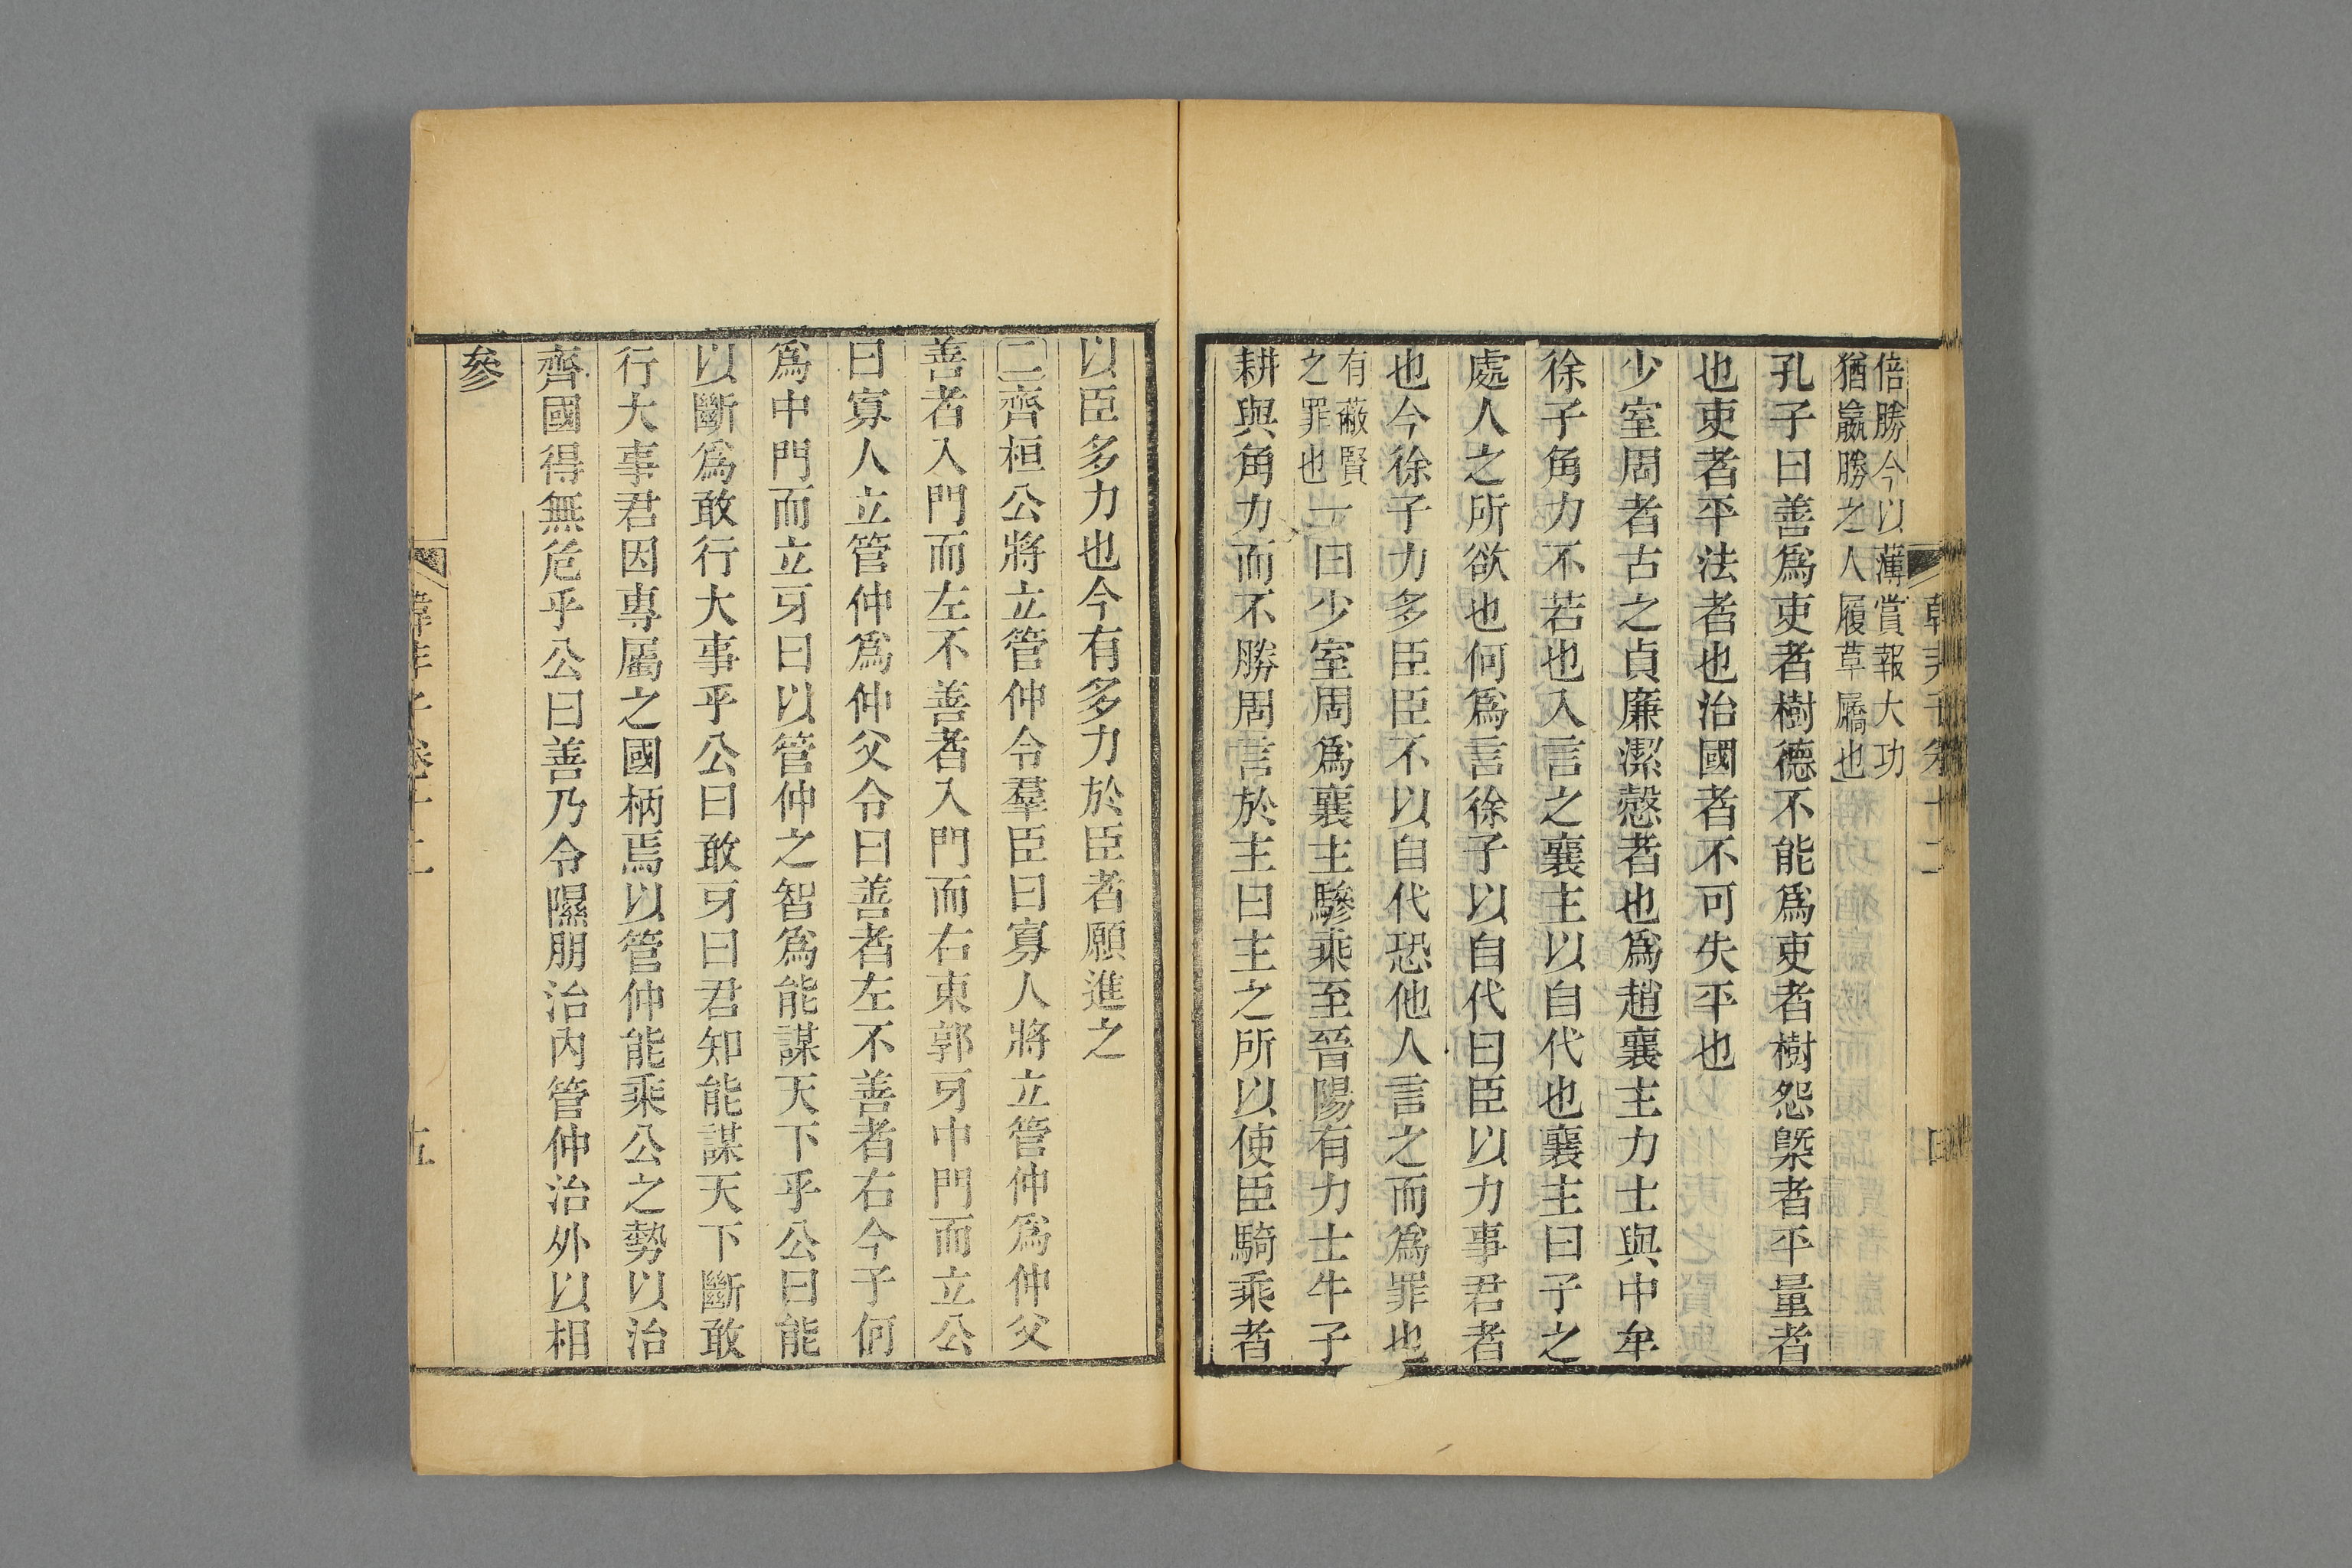 倍勝今以薄賞報大功
猶羸勝之人履草屩也
孔子曰善爲吏者樹德不能爲吏者樹怨槩者平量者
也吏者平法者也治國者不可失平也
少室周者古之貞廉潔愨者也爲趙襄主力士與中牟
徐子角力不若也入言之襄主以自代也襄主曰子之
處人之所欲也何爲言徐子以自代曰臣以力事君者
也今徐子力多臣臣不以自代恐他人言之而爲罪也
有蔽賢
之罪也
一曰少室周爲襄主驂乘至晉陽有力士牛子
耕與角力而不勝周言於主曰主之所以使臣騎乘者
以臣多力也今有多力於臣者願進之
二齊桓公將立管仲令羣臣曰寡人將立管仲爲仲父
善者入門而左不善者入門而右東郭牙中門而立公
曰寡人立管仲爲仲父令曰善者左不善者右今子何
爲中門而立牙曰以管仲之智爲能謀天下乎公曰能
以斷爲敢行大事乎公曰敢牙曰君知能謀天下斷敢
行大事君因專屬之國柄焉以管仲能乘公之勢以治
齊國得無危乎公曰善乃令隰朋治內管仲治外以相
參